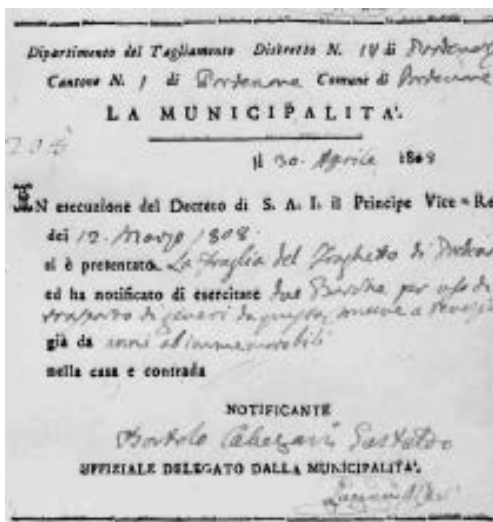 Dipartimento del Tagliamento Distretto N. IV di Pordenone
Cantone N. 1 di Pordenone Comune di Pordenone
LA MUNICIPALITA'.
205
Il 30. Aprile 1808
IN esecuzione del Decreto di S. A. I. il Principe Vice=Re
dei 12. Marzo 1808.
si è presentato. La fraglia del Traghetto di
ed ha notificato di esercitare due Barche per uso di
trasporto di generi da a Venezia
già da anni
nella casa e contrada
NOTIFICANTE
Bortolo Gastaldo
UFFIZIALE DELEGATO DALLA MUNICIPALITA'.